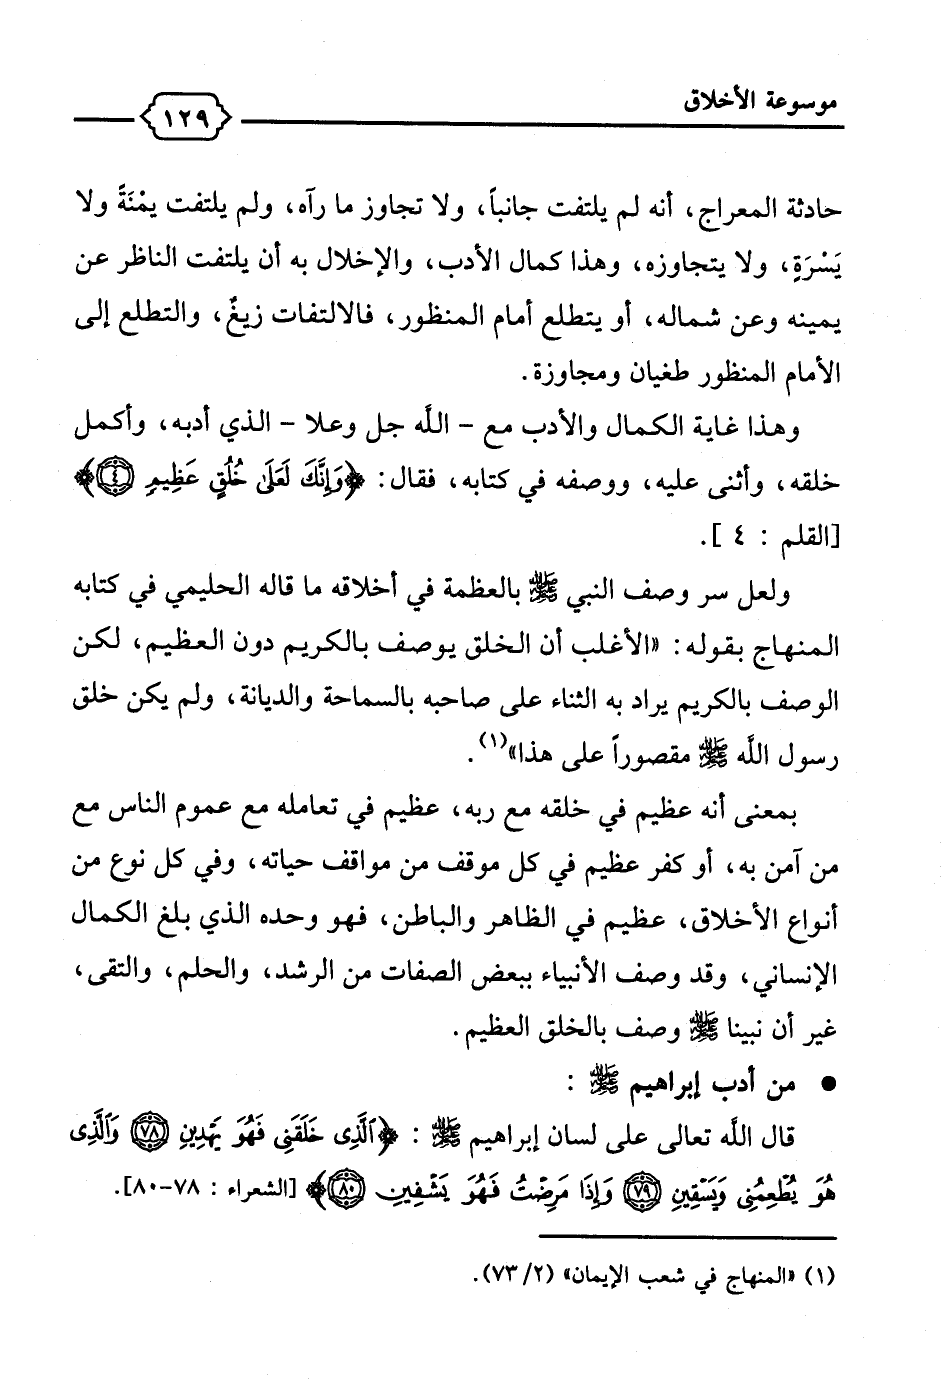 موسوعة الأخلاق
١٢٩
حادثة المعراج، أنه لم يلتفت جانباً، ولا تجاوز ما رآه، ولم يلتفت يمْنَةً ولا
يَسْرَةٍ، ولا يتجاوزه، وهذا كمال الأدب، والإخلال به أن يلتفت الناظر عن
يمينه وعن شماله، أو يتطلع أمام المنظور، فالالتفات زيغٌ، والتطلع إلى
الأمام المنظور طغيان ومجاوزة.
وهذا غاية الكمال والأدب مع - اللَّه جل وعلا - الذي أدبه، وأكمل
خلقه، وأثنى عليه، ووصفه في كتابه، فقال: ﴿وَإِنَّكَ لَعَلَىٰ خُلُقٍ عَظِيمٍ ٤﴾
[القلم : ٤ ].
ولعل سر وصف النبي ﷺ بالعظمة في أخلاقه ما قاله الحليمي في كتابه
المنهاج بقوله: «الأغلب أن الخلق يوصف بالكريم دون العظيم، لكن
الوصف بالكريم يراد به الثناء على صاحبه بالسماحة والديانة، ولم يكن خلق
رسول اللَّه ﷺ مقصوراً على هذا»(١).
بمعنى أنه عظيم في خلقه مع ربه، عظيم في تعامله مع عموم الناس مع
من آمن به، أو كفر عظيم في كل موقف من مواقف حياته، وفي كل نوع من
أنواع الأخلاق، عظيم في الظاهر والباطن، فهو وحده الذي بلغ الكمال
الإنساني، وقد وصف الأنبياء ببعض الصفات من الرشد، والحلم، والتقى،
غير أن نبينا ﷺ وصف بالخلق العظيم.
● من أدب إبراهيم ﷺ :
قال اللَّه تعالى على لسان إبراهيم ﷺ : ﴿ٱلَّذِى خَلَقَنِى فَهُوَ يَهْدِينِ ٧٨ وَٱلَّذِى
هُوَ يُطْعِمُنِى وَيَسْقِينِ ٧٩ وَإِذَا مَرِضْتُ فَهُوَ يَشْفِينِ ٨٠﴾ [الشعراء : ٧٨-٨٠].
(١) «المنهاج في شعب الإيمان» (٧٣/٢).